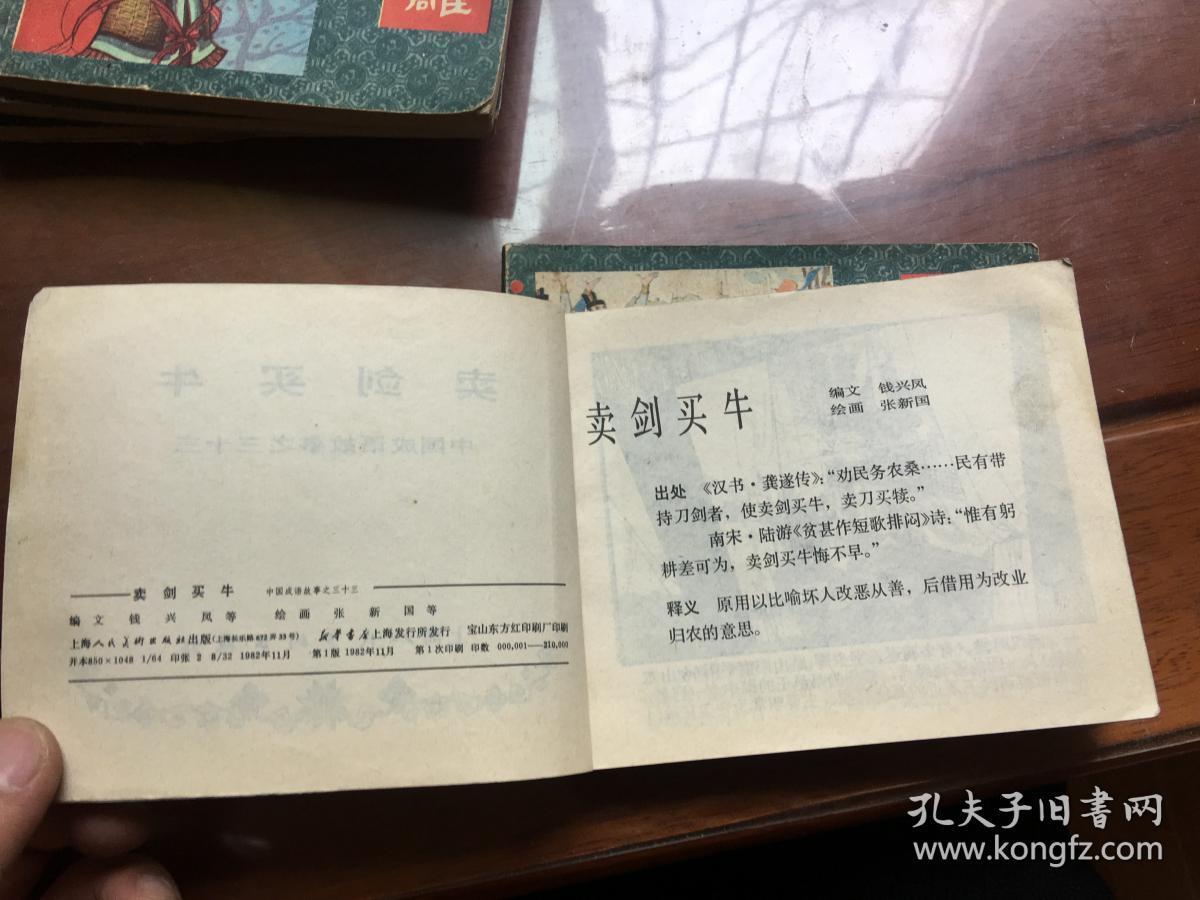 卖剑买牛 中国成语故事之三十三
编文 钱兴凤等 绘画 张新国等
上海人民美术出版社出版(上海长乐路672弄33号) 新华书店上海发行所发行 宝山东方红印刷厂印刷
开本850×1048 1/64 印张 2 8/32 1982年11月 第1版 1982年11月 第1次印刷 印数 000,001—210,000
卖剑买牛
编文 钱兴凤
绘画 张新国
出处 《汉书·龚遂传》:“劝民务农桑……民有带
持刀剑者，使卖剑买牛，卖刀买犊。”
南宋·陆游《贫甚作短歌排闷》诗:“惟有躬
耕差可为，卖剑买牛悔不早。”
释义 原用以比喻坏人改恶从善，后借用为改业
归农的意思。
卖剑买牛
中国成语故事之三十三
孔夫子旧書网
www.kongfz.com